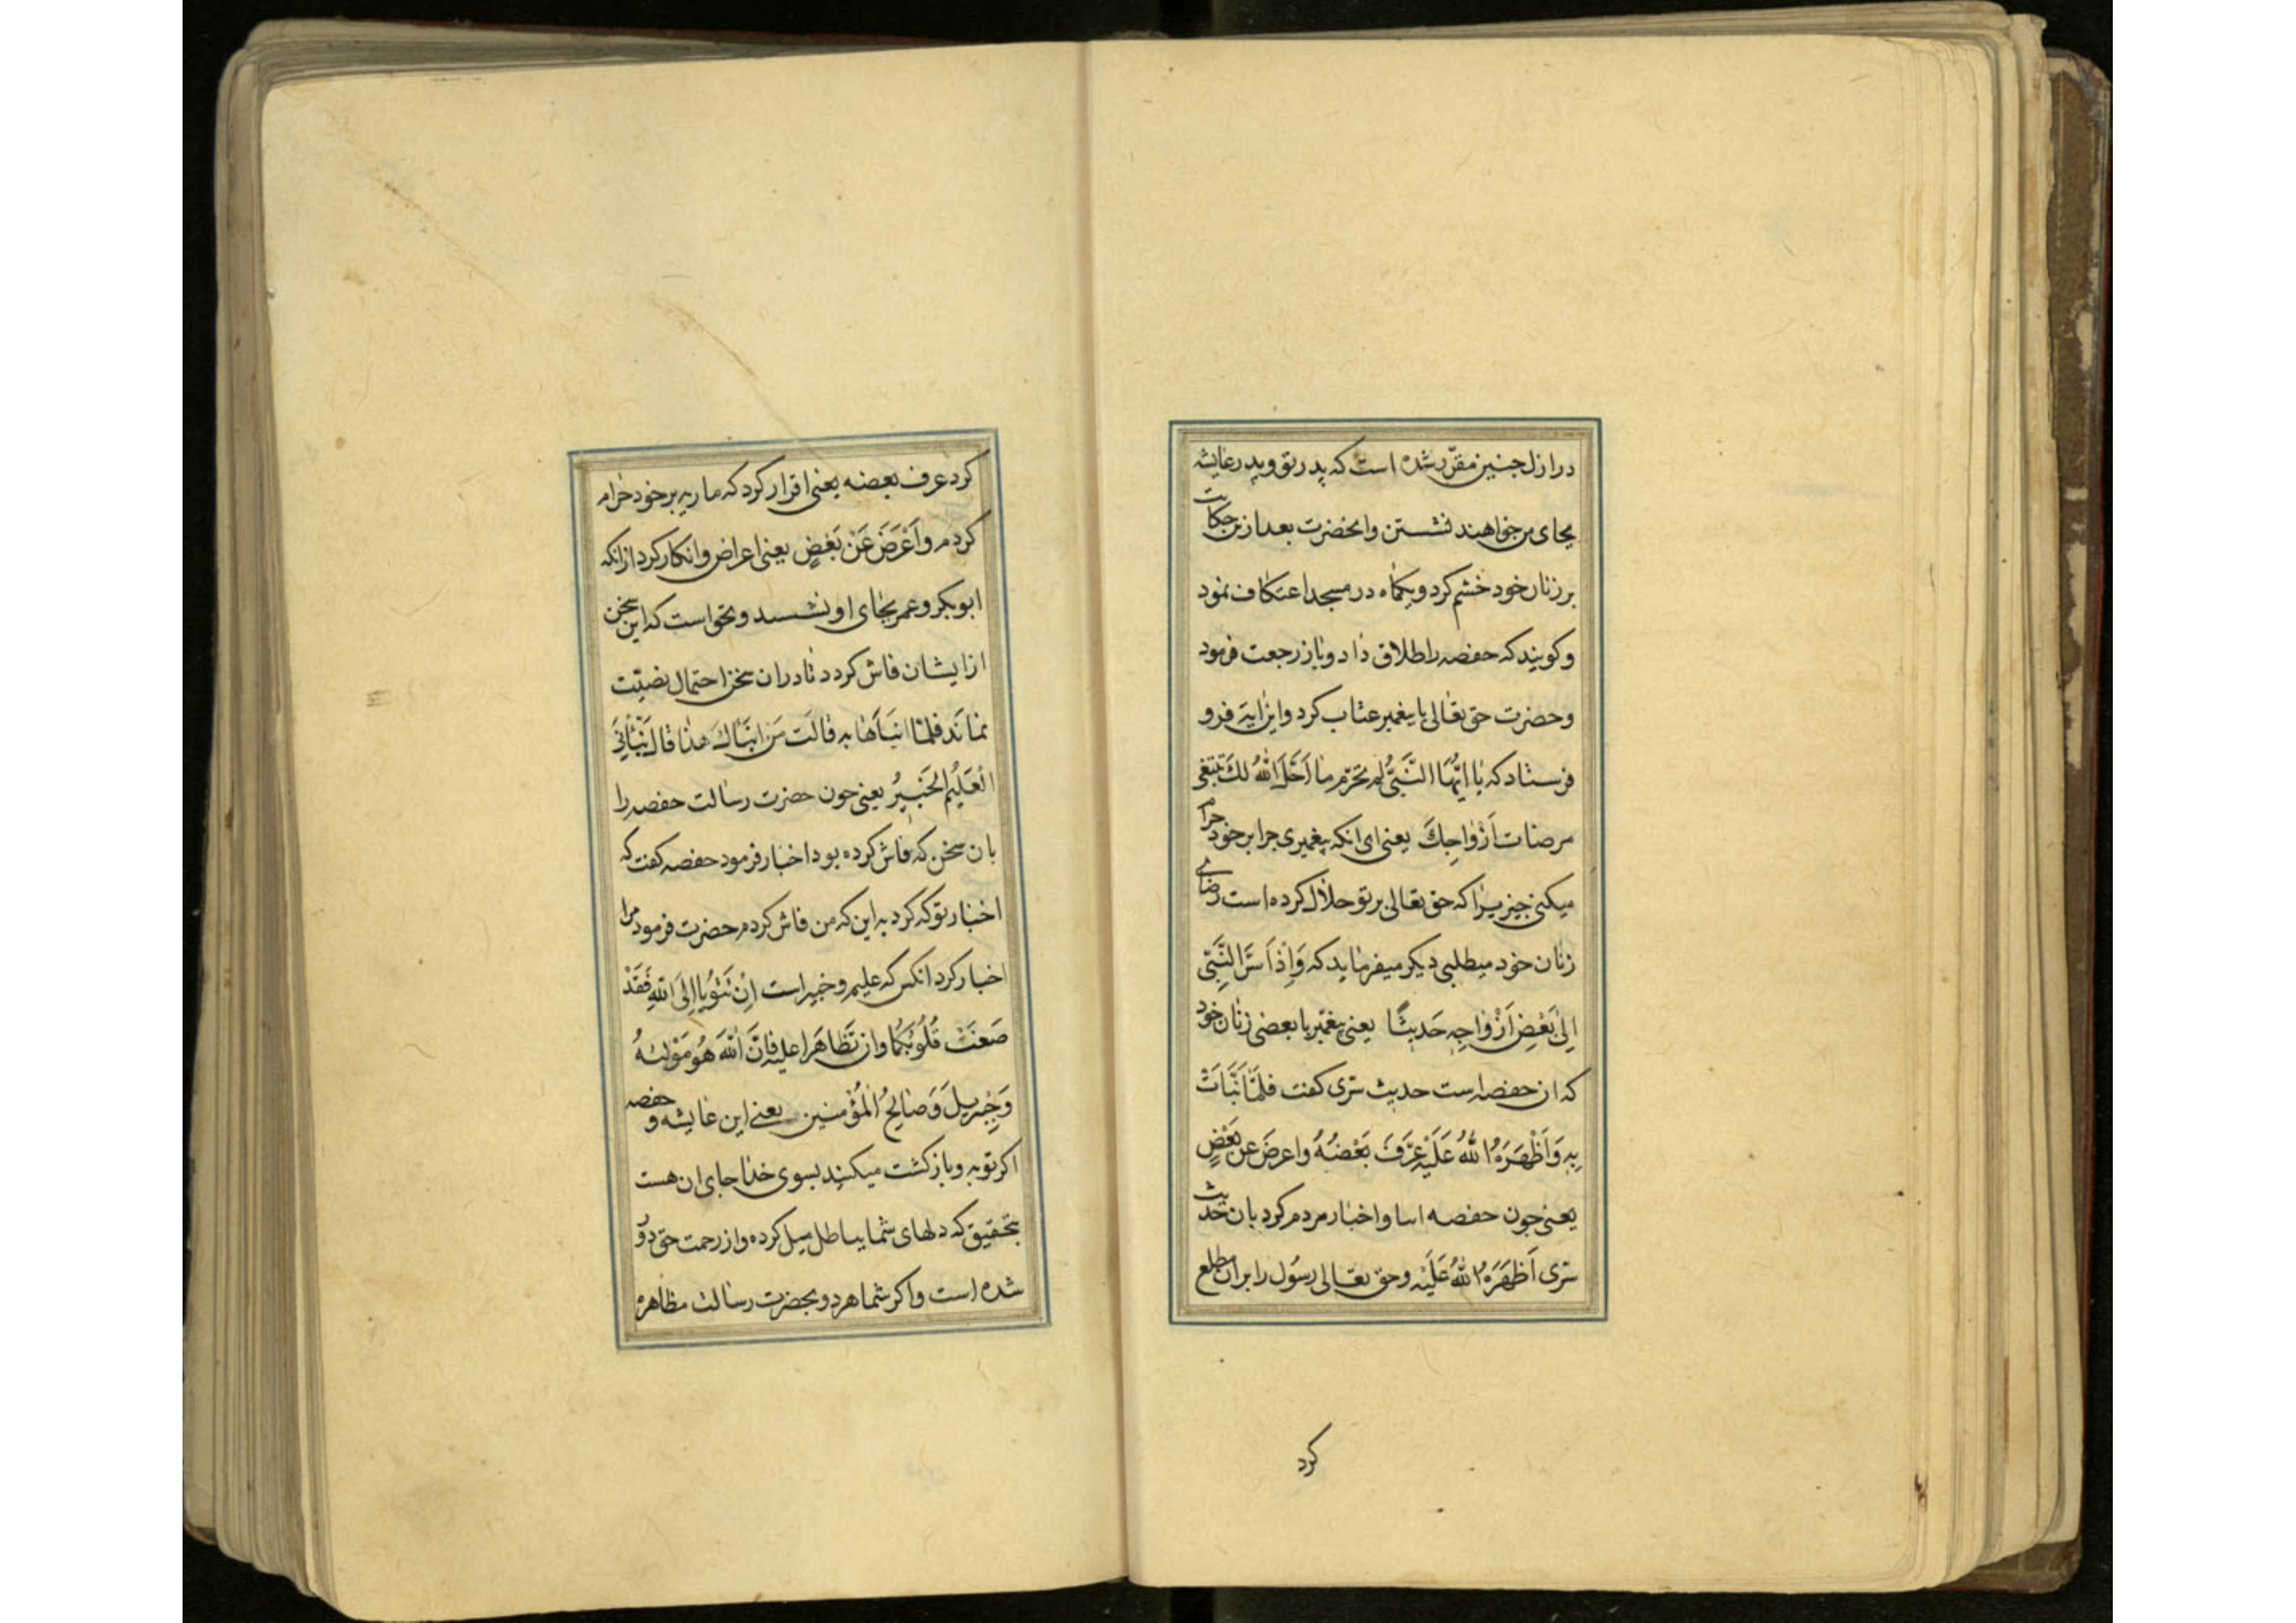 در ازل جنین مقرّر شده است که پدر تو و پدر عایشه
بجای من خواهند نشستن و انحضرت بعد از ین حکایت
بر زنان خود خشم کرد و یکماه در مسجد اعتکاف نمود
و کویند که حفصه را طلاق داد و باز رجعت فرمود
و حضرت حق تعالی با پیغمبر عتاب کرد و این ایة فرو
فرستاد که یا ایُّهَا النَّبیُّ لم تحرّم ما اَحَلَ اللهُ لَكَ تبتغی
مرضات اَزْواجِكَ یعنی ای انکه پیغمبری جرا بر خود حرام
میکنی جیزیرا که حق تعالی بر تو حلال کرده است رضای
زنان خود میطلبی دیکر میفرماید که وَاِذْ اَسَرَّ النَّبیّ
اِلیٰ بَعْضِ اَزْواجِهِ حَدیثًا یعنی پیغمبر با بعضی زنان خود
که ان حفصه است حدیث سّری کفت فلمّا نَبَّاَتْ
بِهِ وَاَظْهَرَهُ اللهُ عَلَیْهِ عَرَّفَ بَعْضَهُ واعرضَ عن بَعْضٍ
یعنی جون حفصه اسا و اخبار مردم کرد بان حدیث
سّری اَظهَرَهُ اللهُ عَلَیْه و حق تعالی رسُول را بر ان مطلع
کرد
کرد عرف بعضه یعنی اقرار کرد که ماریه بر خود حرام
کردم و اَعْرَضَ عَنْ بَعْضٍ یعنی اعراض و انکار کرد از انکه
ابوبکر و عمر بجای او نشسند و نخواست که این سخن
از ایشان فاش کردد تا در ان سخن احتمال نصیّت
نماند فلمّا انبَاَها به قالَت مَن انبَاَكَ هذا قالَ نَبَّاَنِیَ
الْعَلیُم الخَبیرُ یعنی جون حضرت رسالت حفصه را
بان سخن که فاش کرده بود اخبار فرمود حفصه کفت که
اخبار تو که کرد به این که من فاش کردم حضرت فرمود مرا
اخبار کرد انکس که علیم و خبیر است اِنْ تَتُوبٰا اِلَی اللهِ فَقَدْ
صَغَتْ قُلُوبُکُمٰا وان تَظٰاهَرا علیه فَاِنَّ اللهَ هُوَ مَوْلیٰهُ
وَجِبْریلَ وَصٰالِحُ الْمُؤْمنین یعنی این عایشه و حفصه
اکر توبه و باز کشت میکنید بسوی خدا جای ان هست
بتحقیق که دلهای شما بباطل میل کرده و از رحمت حق دور
شده است و اکر شما هر دو بحضرت رسالت مظاهره